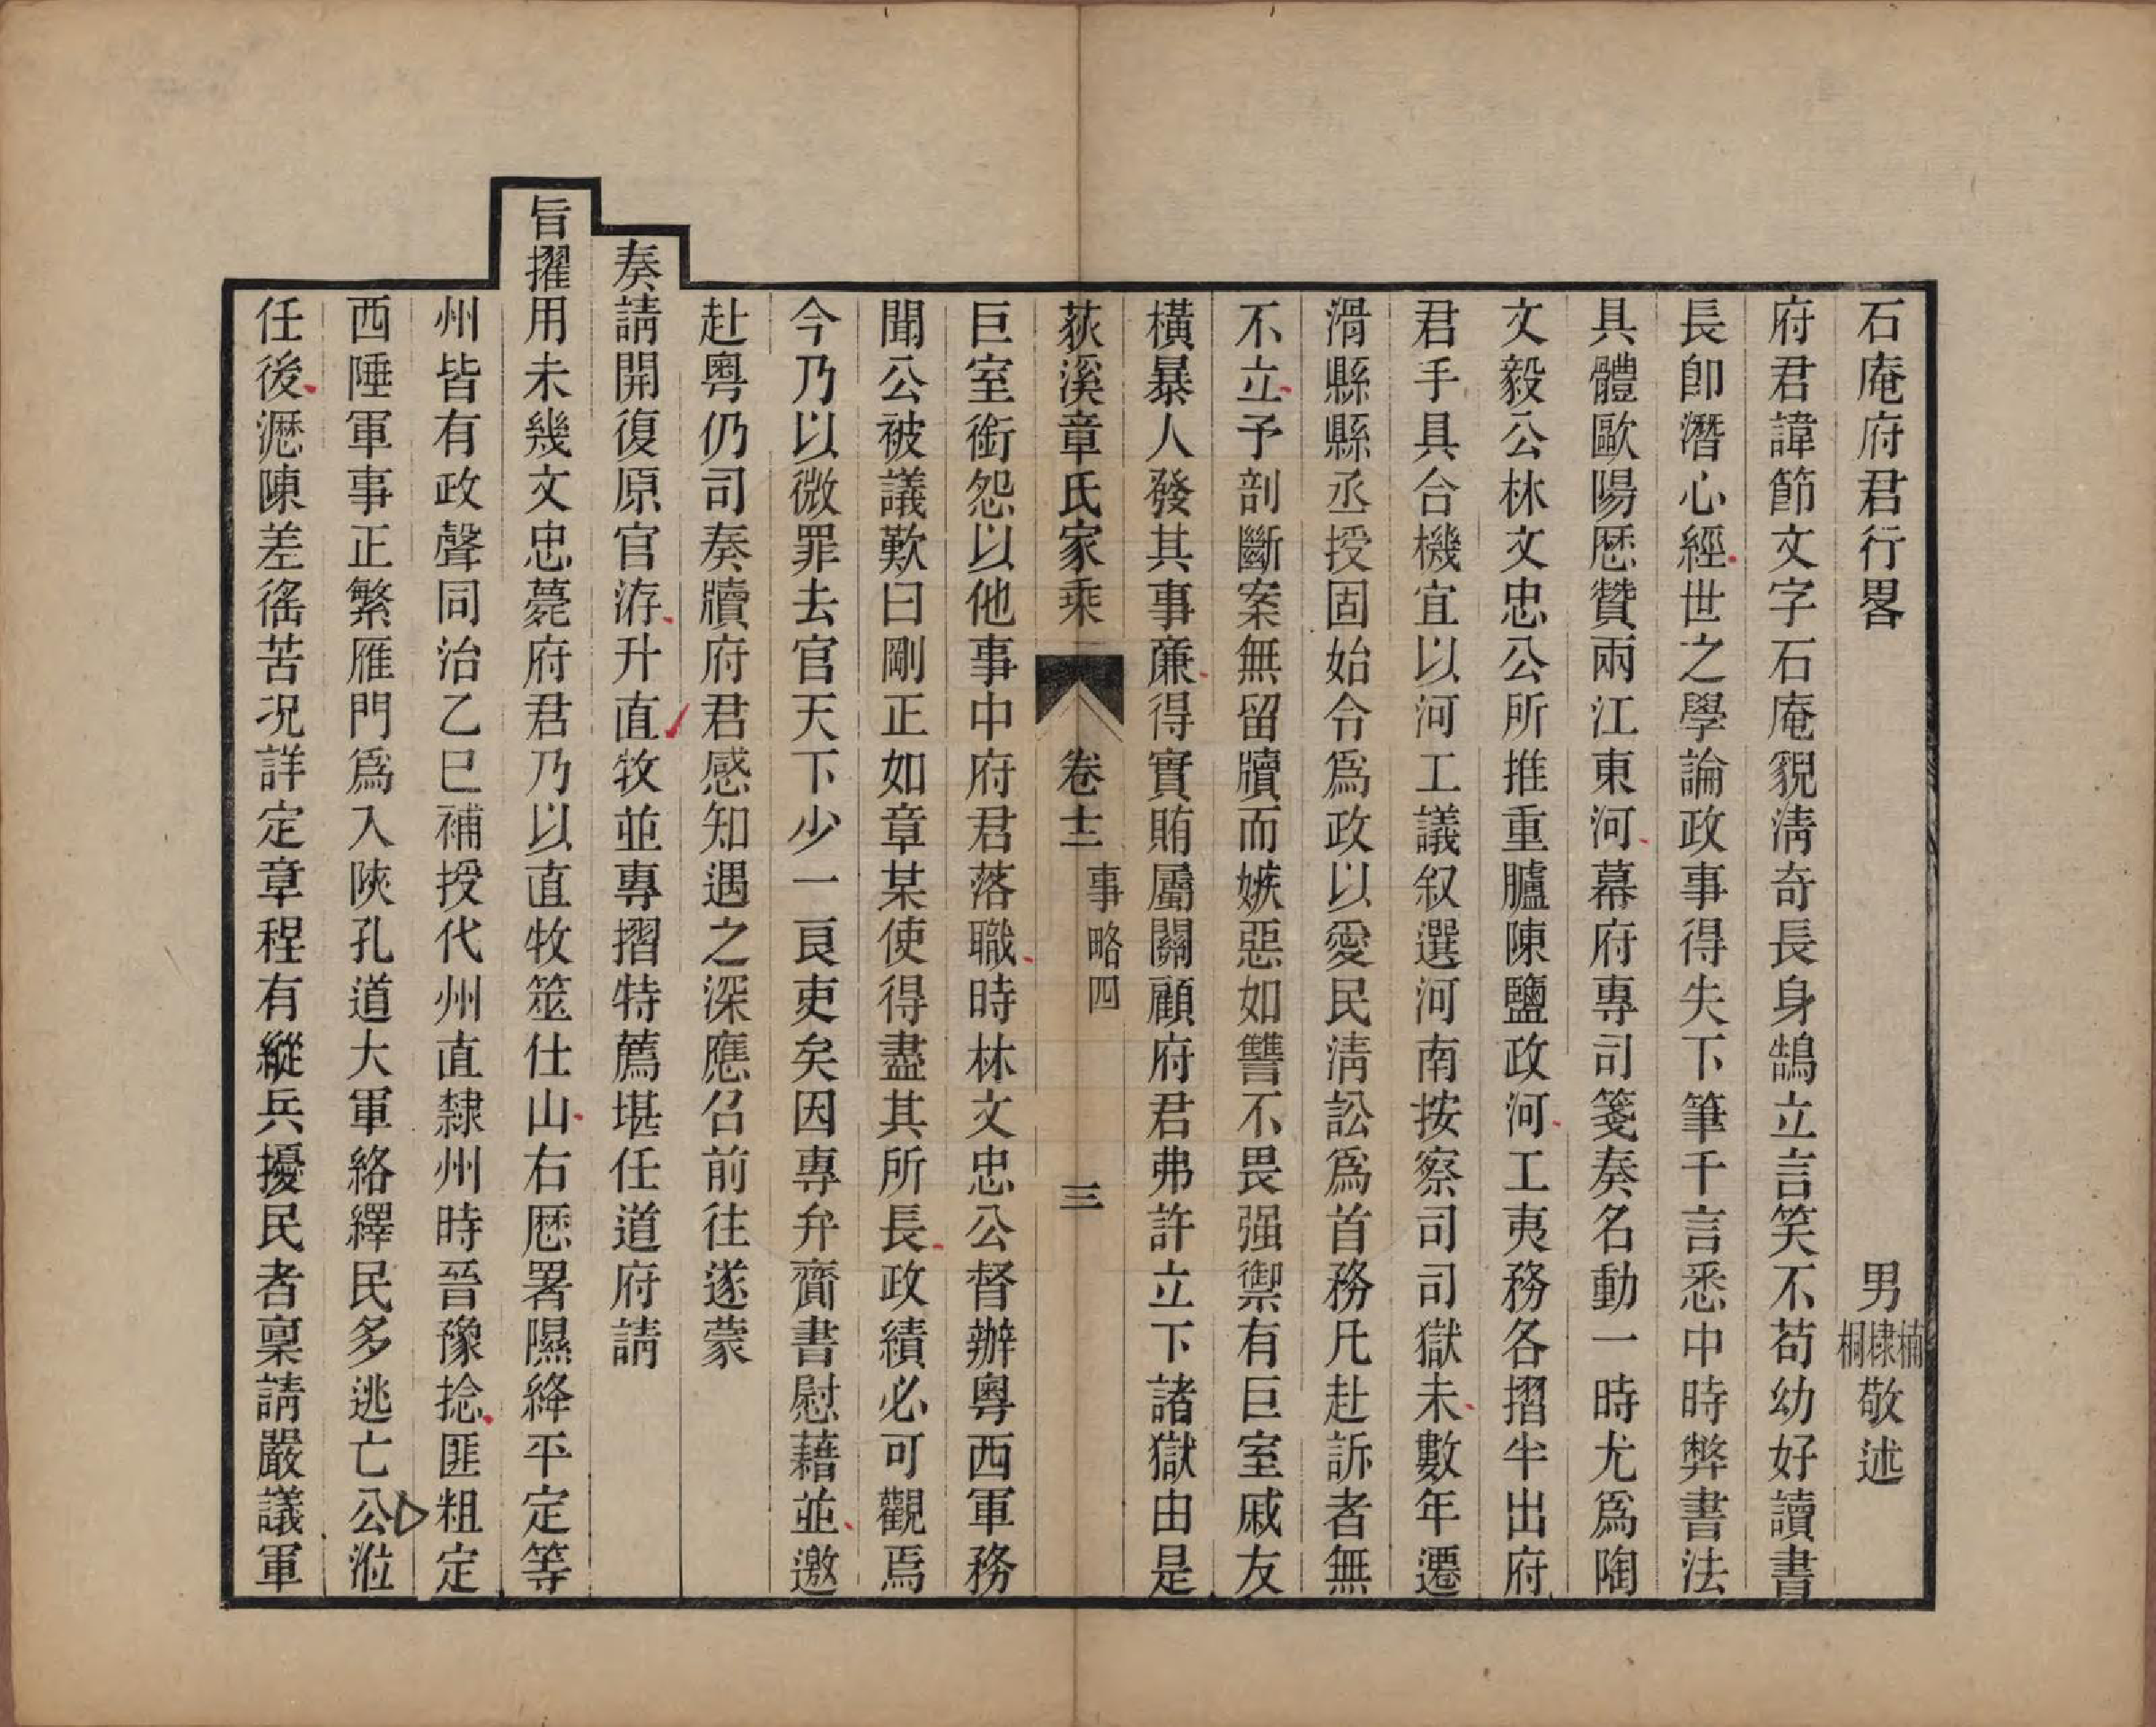 石庵府君行畧　男楠棣桐敬述
府君諱節文字石庵貎淸奇長身鵠立言笑不苟幼好讀書
長卽潛心經世之學論政事得失下筆千言悉中時弊書法
具體歐陽厯贊兩江東河幕府專司箋奏名動一時尤爲陶
文毅公林文忠公所推重臚陳鹽政河工夷務各摺半出府
君手具合機宜以河工議叙選河南按察司司獄未數年遷
滑縣縣丞授固始令爲政以愛民淸訟爲首務凡赴訴者無
不立予剖斷案無留牘而嫉惡如讐不畏强禦有巨室戚友
橫暴人發其事亷得實賄屬關顧府君弗許立下諸獄由是
荻溪章氏家乘　卷十二　事略四　三
巨室銜怨以他事中府君落職時林文忠公督辦粵西軍務
聞公被議歎曰剛正如章某使得盡其所長政績必可觀焉
今乃以微罪去官天下少一良吏矣因專弁齎書慰藉並邀
赴粵仍司奏牘府君感知遇之深應召前往遂蒙
奏請開復原官洊升直牧並專摺特薦堪任道府請
旨擢用未幾文忠薨府君乃以直牧筮仕山右厯署隰絳平定等
州皆有政聲同治乙巳補授代州直隸州時晉豫捻匪粗定
西陲軍事正繁雁門爲入陝孔道大軍絡繹民多逃亡公涖
任後瀝陳差徭苦况詳定章程有縱兵擾民者稟請嚴議軍